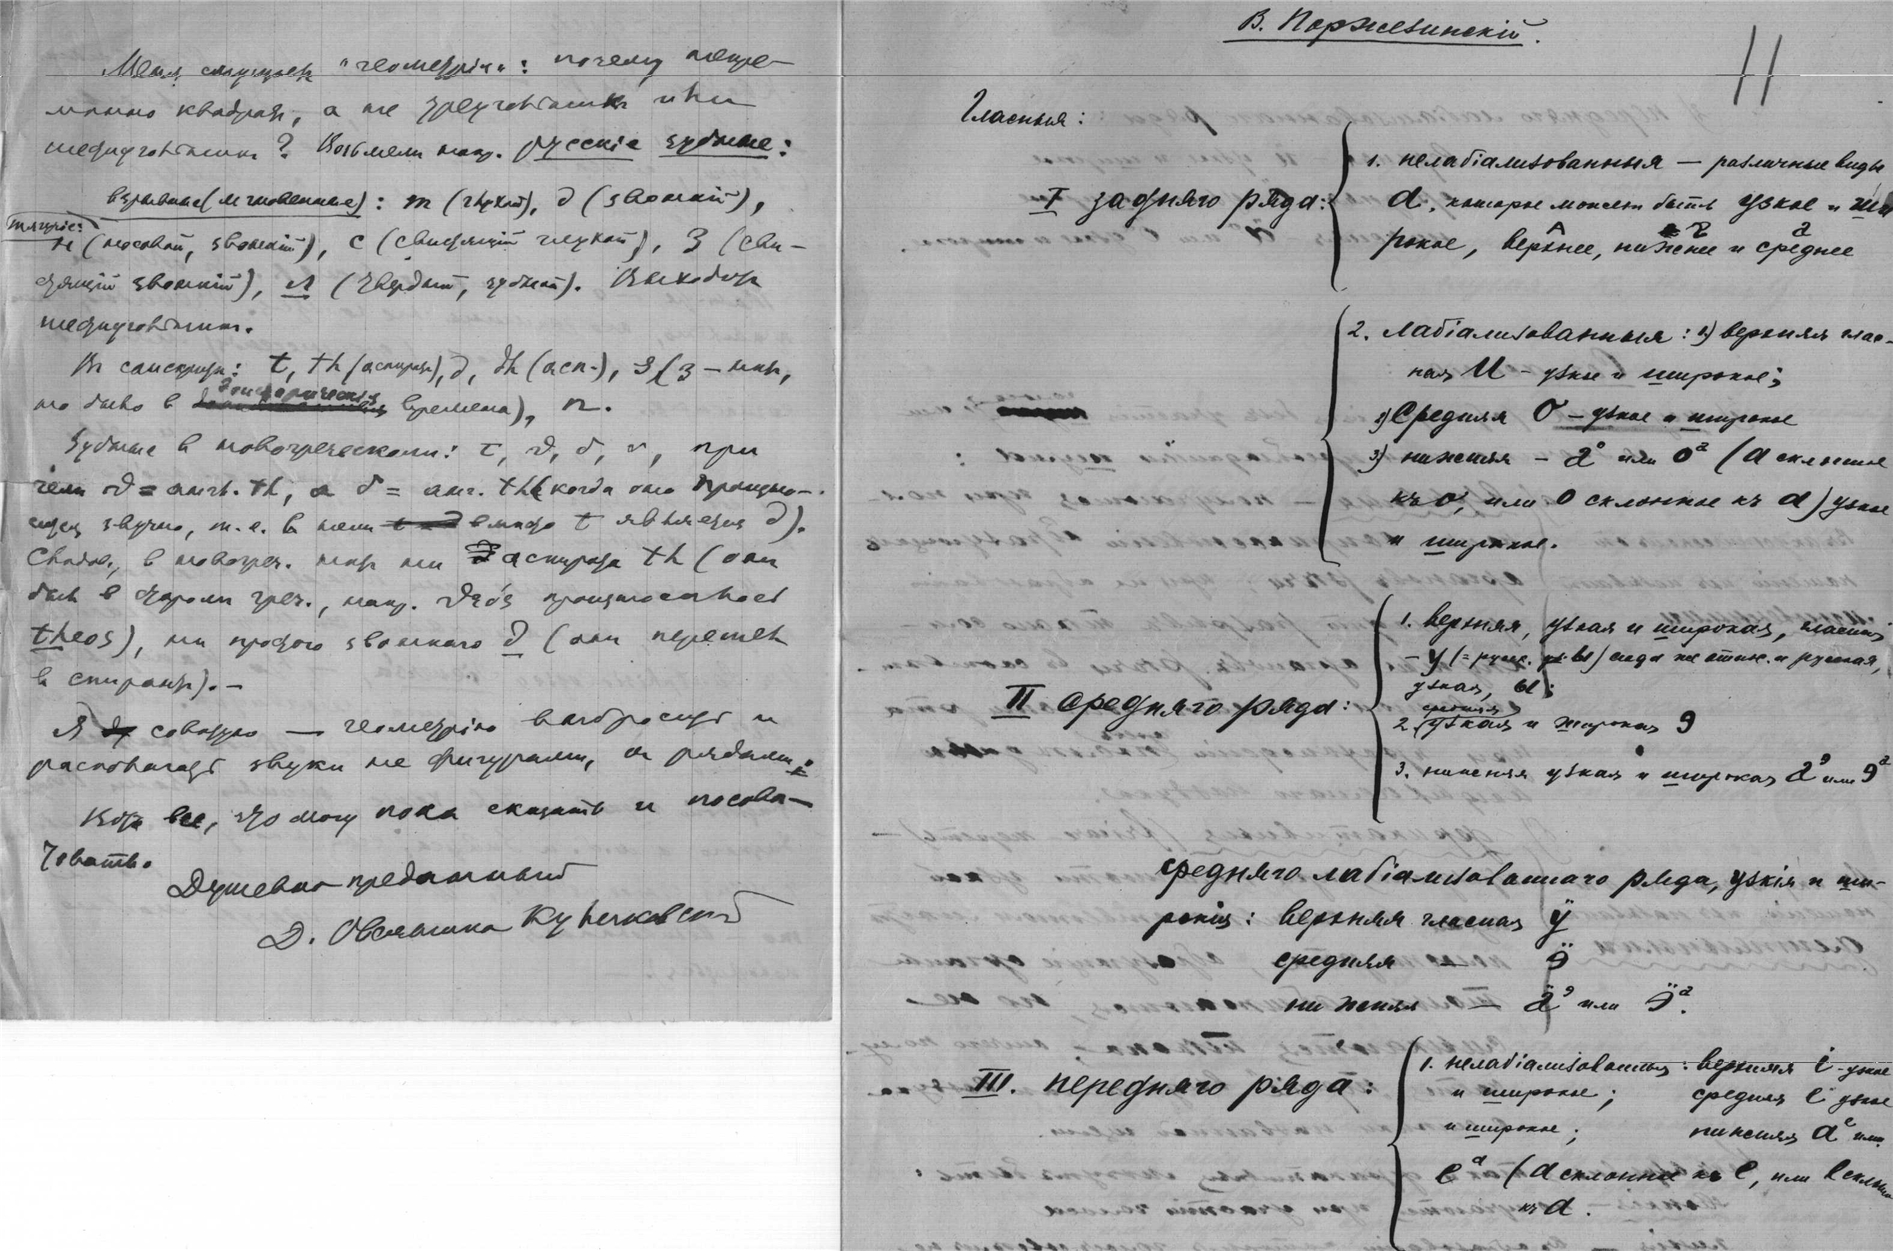 Меня смущаетъ "геометрія": почему непре-
мѣнно квадратъ, а не треугольникъ или
шестиугольникъ? Возьмемъ напр. русскіе зубные:
взрывные (мгновенные): т (глухой), д (звонкій),
н (носовой, звонкій), с (свистящій глухой), з (сви-
стящій звонкій), л (твердый, зубной). Выходитъ
шестиугольникъ.
Въ санскритѣ: t, th (аспирата), d, dh (асп.), з (з – нѣтъ,
но было в доисторическія времена), n.
Зубные в новогреческомъ: τ, ϑ, δ, σ, при
чемъ ϑ = англ. th, а δ = анг. th (когда оно произно-
сится звучно, т.е. в немъ вмѣсто t является d).
Слѣдов., в новогреч. нѣтъ ни аспираты th (она
была в старомъ греч., напр. ϑεός произносилось
theos), ни простого звонкаго d (онъ перешелъ
в спиранту). –
Я совѣтую — геометрію выбросить и
располагать звуки не фигурами, а рядами.
Вотъ все, что могу пока сказать и посовѣ-
товать.
Душевно преданный
Д. Овсянико Куликовскій
В. Поржезинскій.
11
Гласныя:
I задняго ряда:
1. нелабіализованныя — различные виды
a, которые может быть узкое и ши
рокое, верхнее, нижнее и среднее
2. лабіализованныя: 1) верхняя глас-
ная u – узкое и широкое;
2) средняя o – узкое и широкое
3) нижняя – a° или oª (a склонное
къ o, или o склонное къ a) узкое
и широкое.
II средняго ряда:
1. верхняя, узкая и широкая, гласная
– y (= русск. ы) сюда же относ. и русская,
узкая, ы;
2. средняя узкая и широкая э
3. нижняя узкая и широкая aᵊ или эª
средняго лабіализованнаго ряда, узкія и ши-
рокія: верхняя гласная ÿ
средняя — ӭ
нижняя — äᵊ или ӭª.
III. передняго ряда:
1. нелабіализованныя: верхняя i - узкое
и широкое; средняя e узкое
и широкое; нижняя aᵉ или
eª (a склонное къ e, или e склонное
къ a.